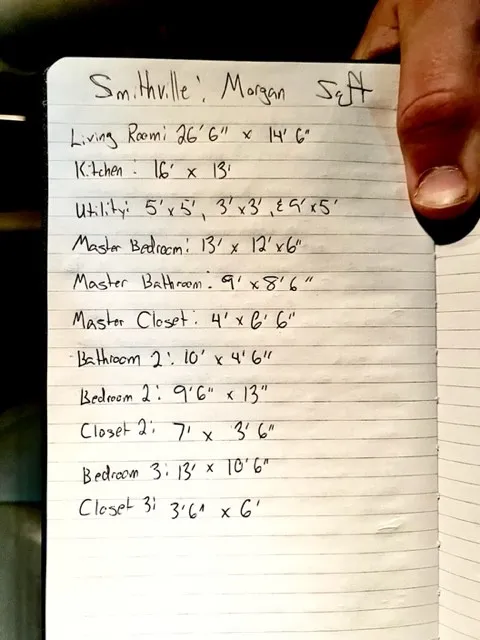 Smithville: Morgan Sqft
Living Room: 26' 6" x 14' 6"
Kitchen: 16' x 13'
Utility: 5' x 5', 3' x 3', & 9' x 5'
Master Bedroom: 13' x 12' x 6"
Master Bathroom: 9' x 8' 6"
Master Closet: 4' x 6' 6"
Bathroom 2: 10' x 4' 6"
Bedroom 2: 9' 6" x 13"
Closet 2: 7' x 3' 6"
Bedroom 3: 13' x 10' 6"
Closet 3: 3' 6" x 6'